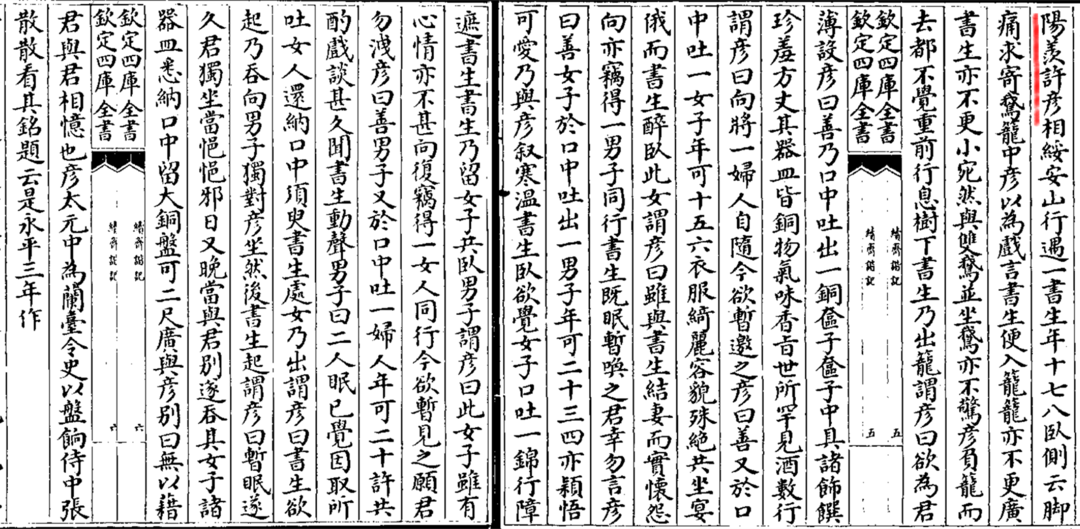 陽羨許彦相綏安山行遇一書生年十七八卧側云脚
痛求寄鵞籠中彦以為戲言書生便入籠籠亦不更廣
書生亦不更小宛然與雙鵞並坐鵞亦不驚彦負籠而
去都不覺重前行息樹下書生乃出籠謂彦曰欲為君
欽定四庫全書 續齊諧記 五
欽定四庫全書 續齊諧記 五
薄設彦曰善乃口中吐出一銅奩子奩子中具諸餙饌
珍羞方丈其器皿皆銅物氣味香㫖世所罕見酒數行
謂彦曰向將一婦人自隨今欲暫邀之彦曰善又於口
中吐一女子年可十五六衣服綺麗容貌殊絶共坐宴
俄而書生醉卧此女謂彦曰雖與書生結妻而實懷怨
向亦竊得一男子同行書生既眠暫喚之君幸勿言彦
曰善女子於口中吐出一男子年可二十三四亦穎悟
可愛乃與彦叙寒溫書生卧欲覺女子口吐一錦行障
遮書生書生乃留女子共卧男子謂彦曰此女子雖有
心情亦不甚向復竊得一女人同行今欲暫見之願君
勿洩彦曰善男子又於口中吐一婦人年可二十許共
酌戲談甚久聞書生動聲男子曰二人眠已覺因取所
吐女人還納口中須臾書生處女乃出謂彦曰書生欲
起乃吞向男子獨對彦坐然後書生起謂彦曰暫眠遂
久君獨坐當悒悒邪日又晚當與君别遂吞其女子諸
器皿悉納口中留大銅盤可二尺廣與彦别曰無以藉
欽定四庫全書 續齊諧記 六
欽定四庫全書 續齊諧記 六
君與君相憶也彦太元中為蘭臺令史以盤餉侍中張
散散看其銘題云是永平三年作